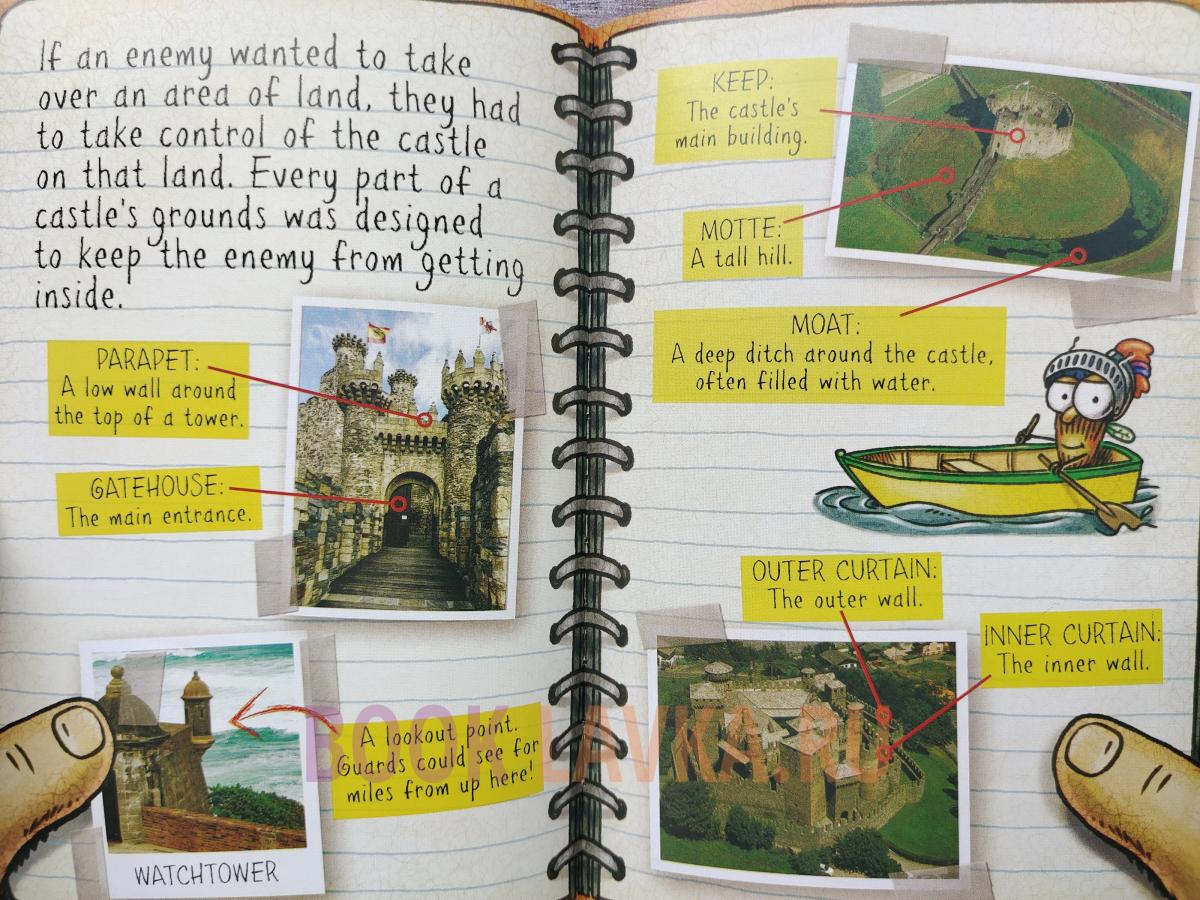 If an enemy wanted to take
over an area of land, they had
to take control of the castle
on that land. Every part of a
castle's grounds was designed
to keep the enemy from getting
inside.
PARAPET:
A low wall around
the top of a tower.
GATEHOUSE:
The main entrance.
A lookout point.
Guards could see for
miles from up here!
WATCHTOWER
KEEP:
The castle's
main building.
MOTTE:
A tall hill.
MOAT:
A deep ditch around the castle,
often filled with water.
OUTER CURTAIN:
The outer wall.
INNER CURTAIN:
The inner wall.
BOOK-LAVKA.RU